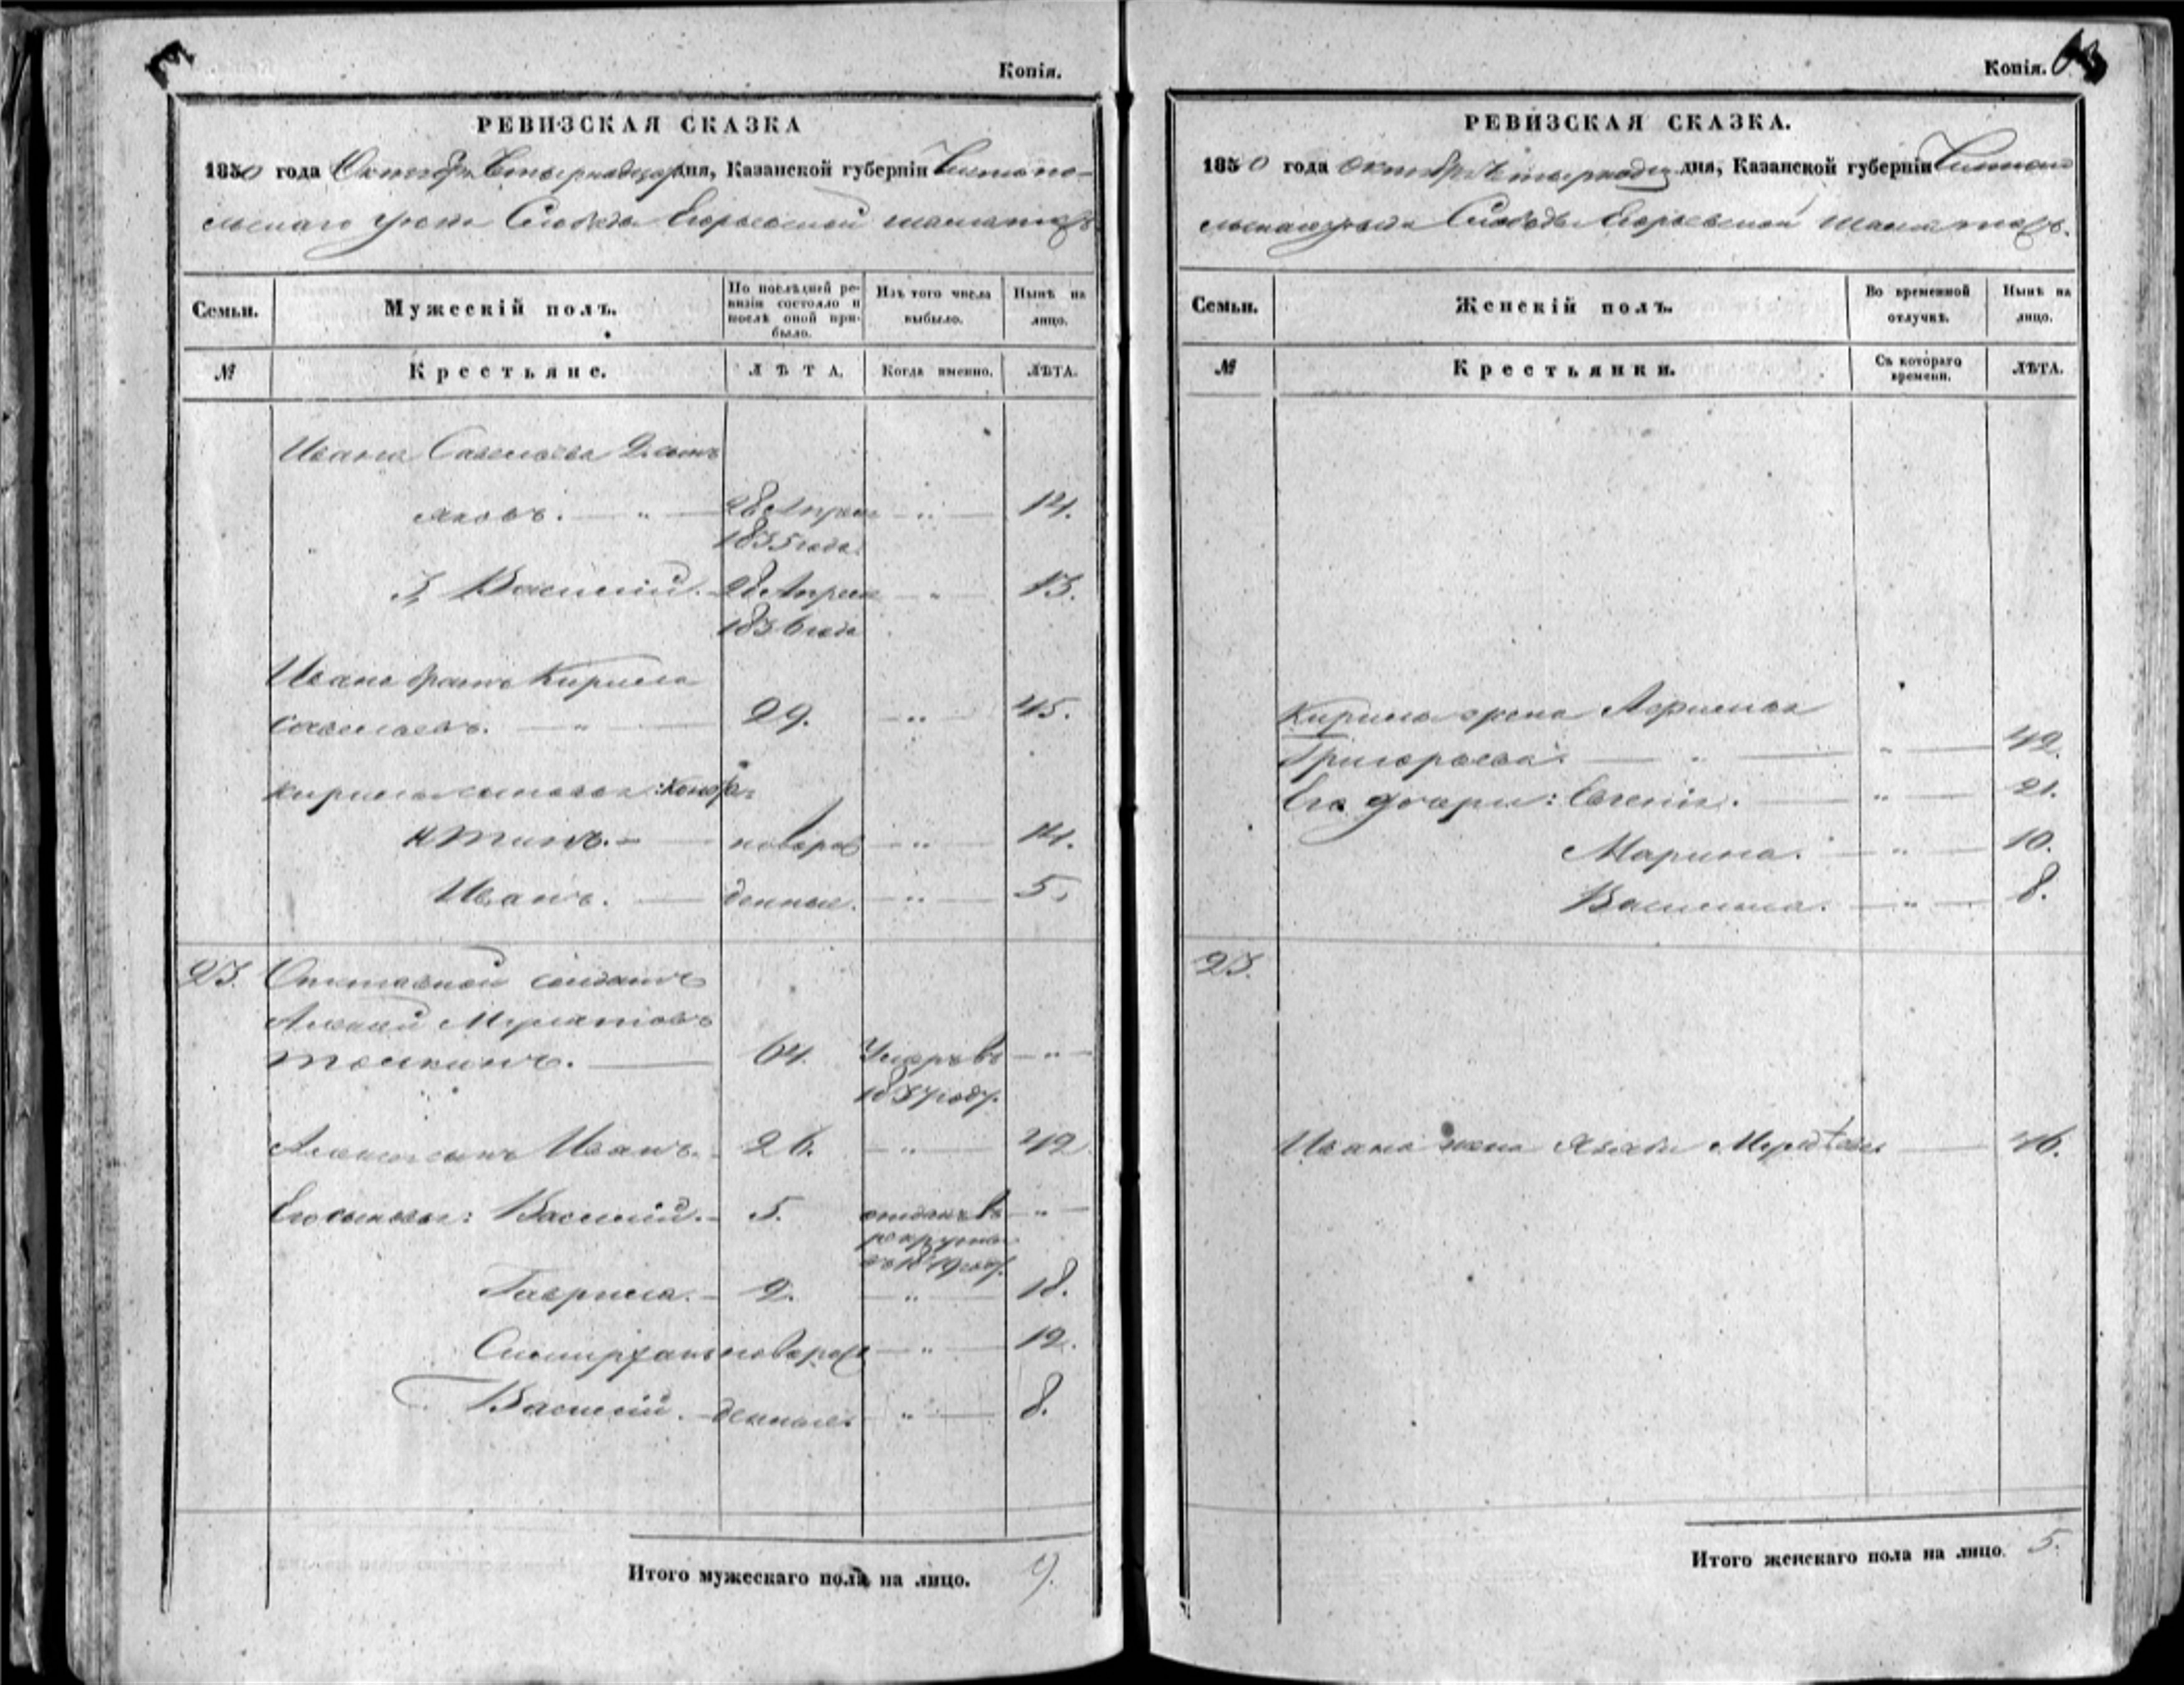 Копія.
РЕВИЗСКАЯ СКАЗКА
1850 года Октября Четырнадцат дня, Казанской губерніи Чистопо-
льскаго уѣзда Слободы Егорьевской
Семьи.
Мужескій полъ.
По послѣдней ре-
визіи состояло и
послѣ оной при-
было.
Изъ того числа
выбыло.
Нынѣ на
лицо.
№
Крестьяне.
ЛѢТА.
Когда именно.
ЛѢТА.
Ивана Савельева 2. сынъ
Яковъ. — " — 28 Апреля — " — 14.
1835 года.
3, Василій. 28 Апреля — " — 13.
1836 года
Ивана братъ Кирила
Савельевъ. — " — 29. — " — 45.
Кирила сыновья: Конста-
нтинъ. — новорож — " — 14.
Иванъ. — денные. — " — 5.
23. Отставной солдатъ
Алексей
— 64. Умеръ въ — " —
1837 году.
Алексея сынъ Иванъ. 26. — " — 42
Его сыновья: Василій. 5. отданъ въ — " —
рекруты
въ 1849 году.
Гаврила. 2. — " — 18.
новорож — " — 12.
Василій. — денные — " — 8.
Итого мужескаго пола на лицо. 9.
Копія. 63
РЕВИЗСКАЯ СКАЗКА.
1850 года Октября Четырнадц дня, Казанской губерніи Чистопо
льскаго уѣзда Слободы Егорьевской
Семьи.
Женскій полъ.
Во временной
отлучкѣ.
Нынѣ на
лицо.
№
Крестьянки.
Съ котораго
времени.
ЛѢТА.
Кирила жена
Григорьева. — " — 42.
Его дочери: Евгенія. — " — 21.
Марина. — " — 10.
Василиса. — " — 8.
23.
Ивана жена — 46.
Итого женскаго пола на лицо. 5.